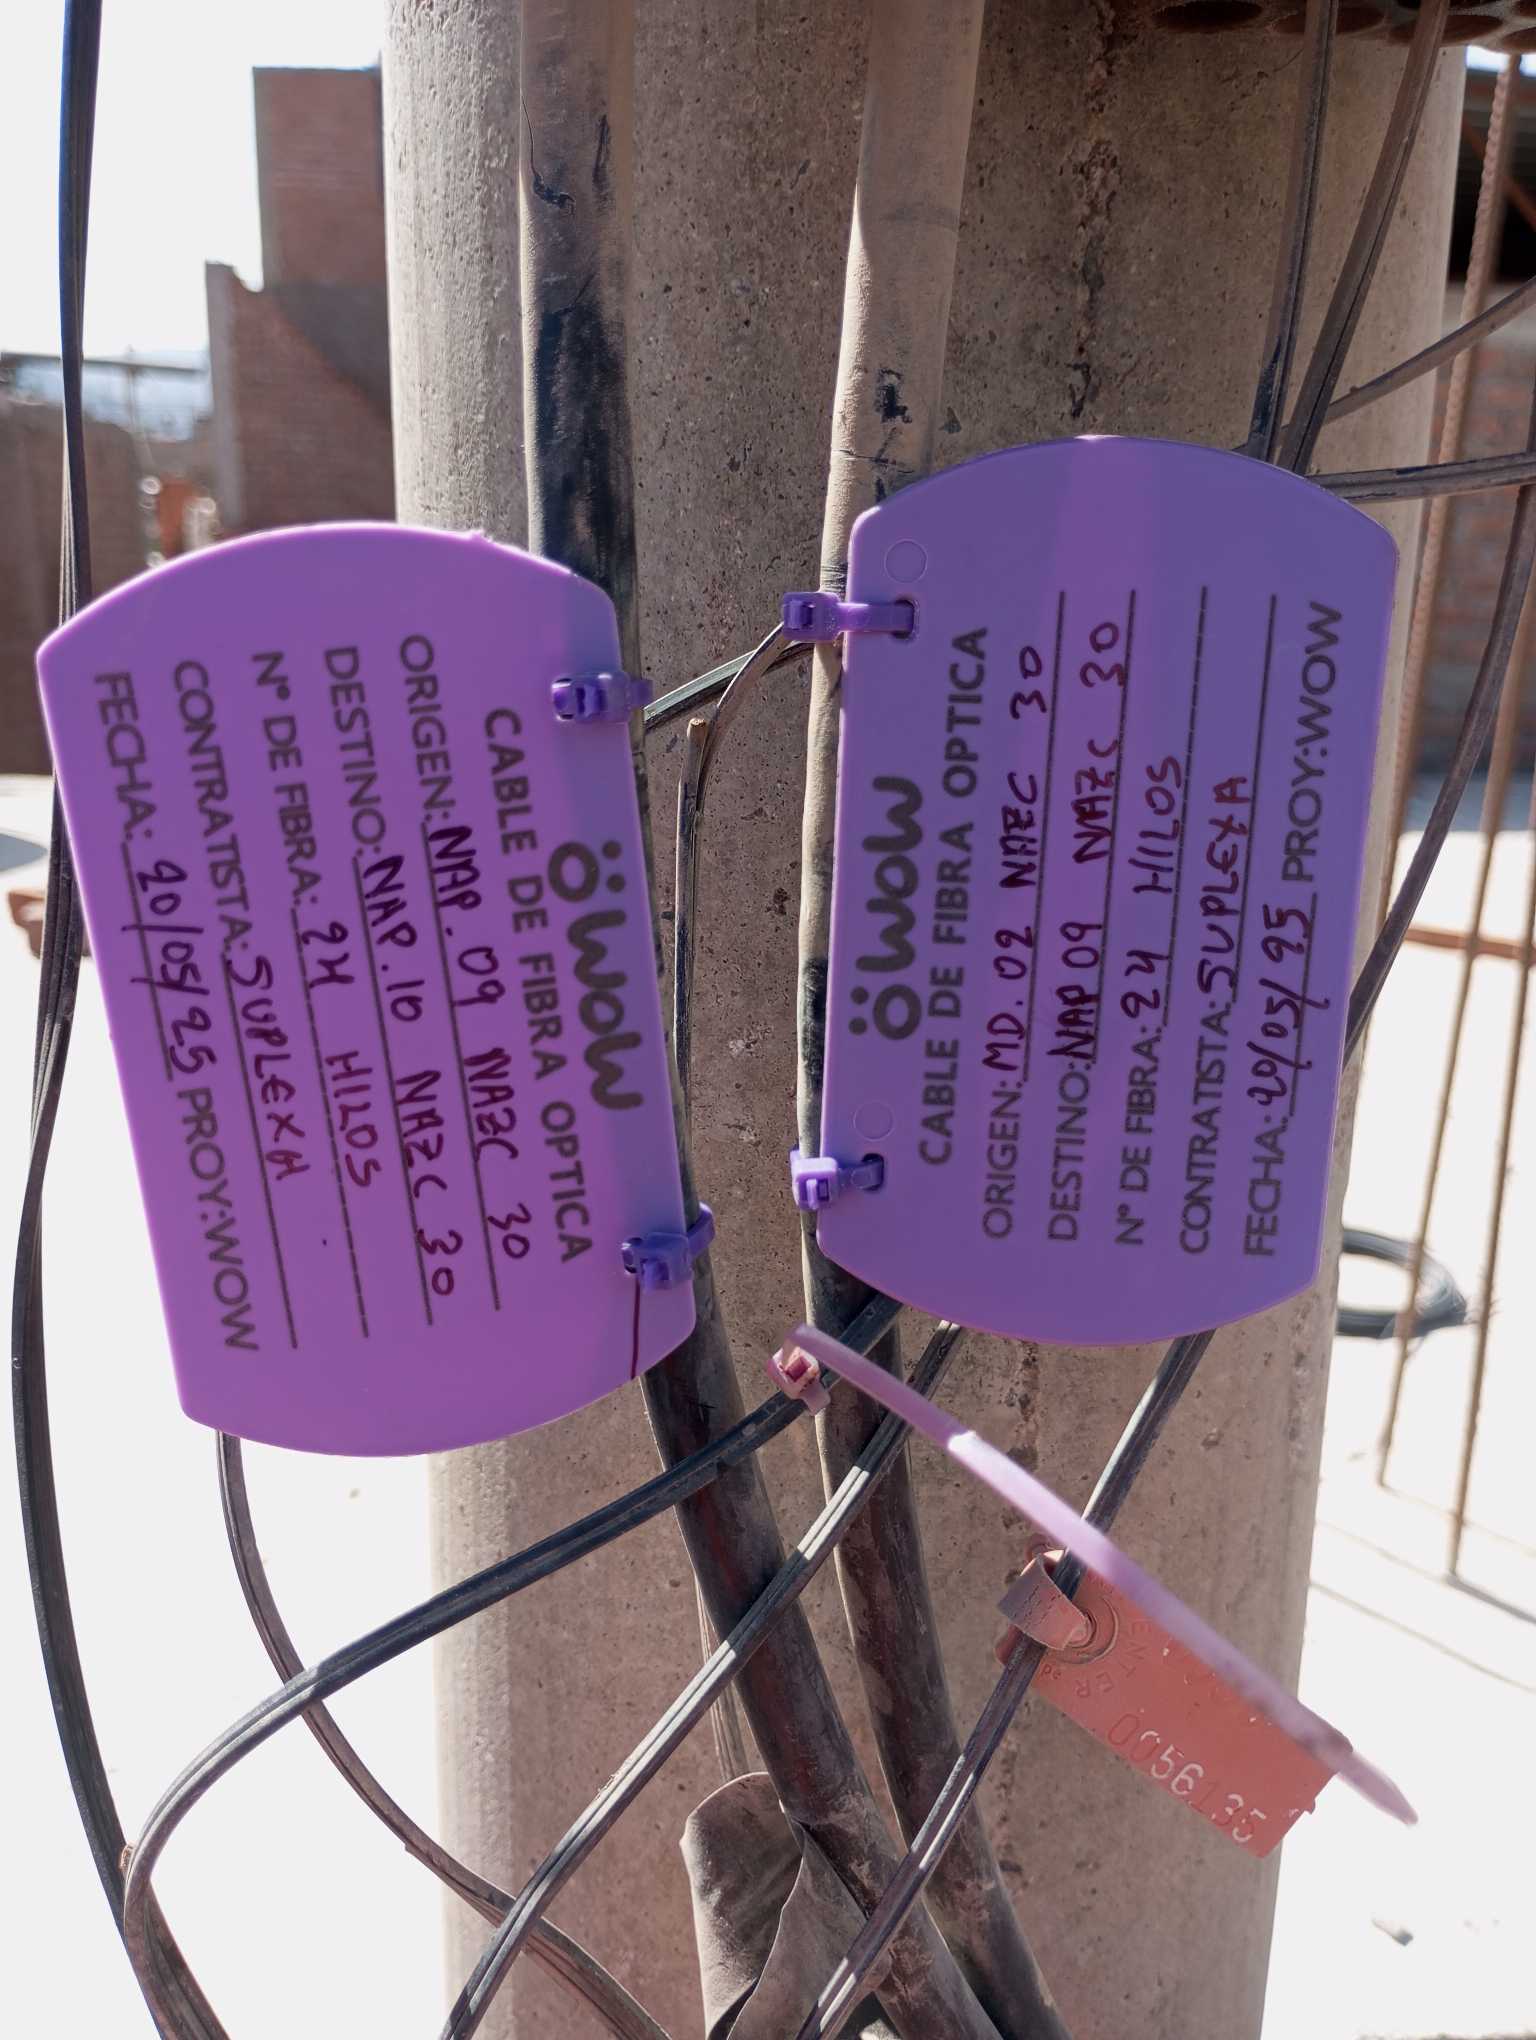 wow
CABLE DE FIBRA OPTICA
ORIGEN: NAP. 09 NAZC 30
DESTINO: NAP. 10 NAZC 30
N° DE FIBRA: 24 HILOS
CONTRATISTA: SUPLEXA
FECHA: 20/05/25 PROY:WOW
wow
CABLE DE FIBRA OPTICA
ORIGEN: MD. 02 NAZC 30
DESTINO: NAP 09 NAZC 30
N° DE FIBRA: 24 HILOS
CONTRATISTA: SUPLEXA
FECHA: 20/05/25 PROY:WOW
0056135